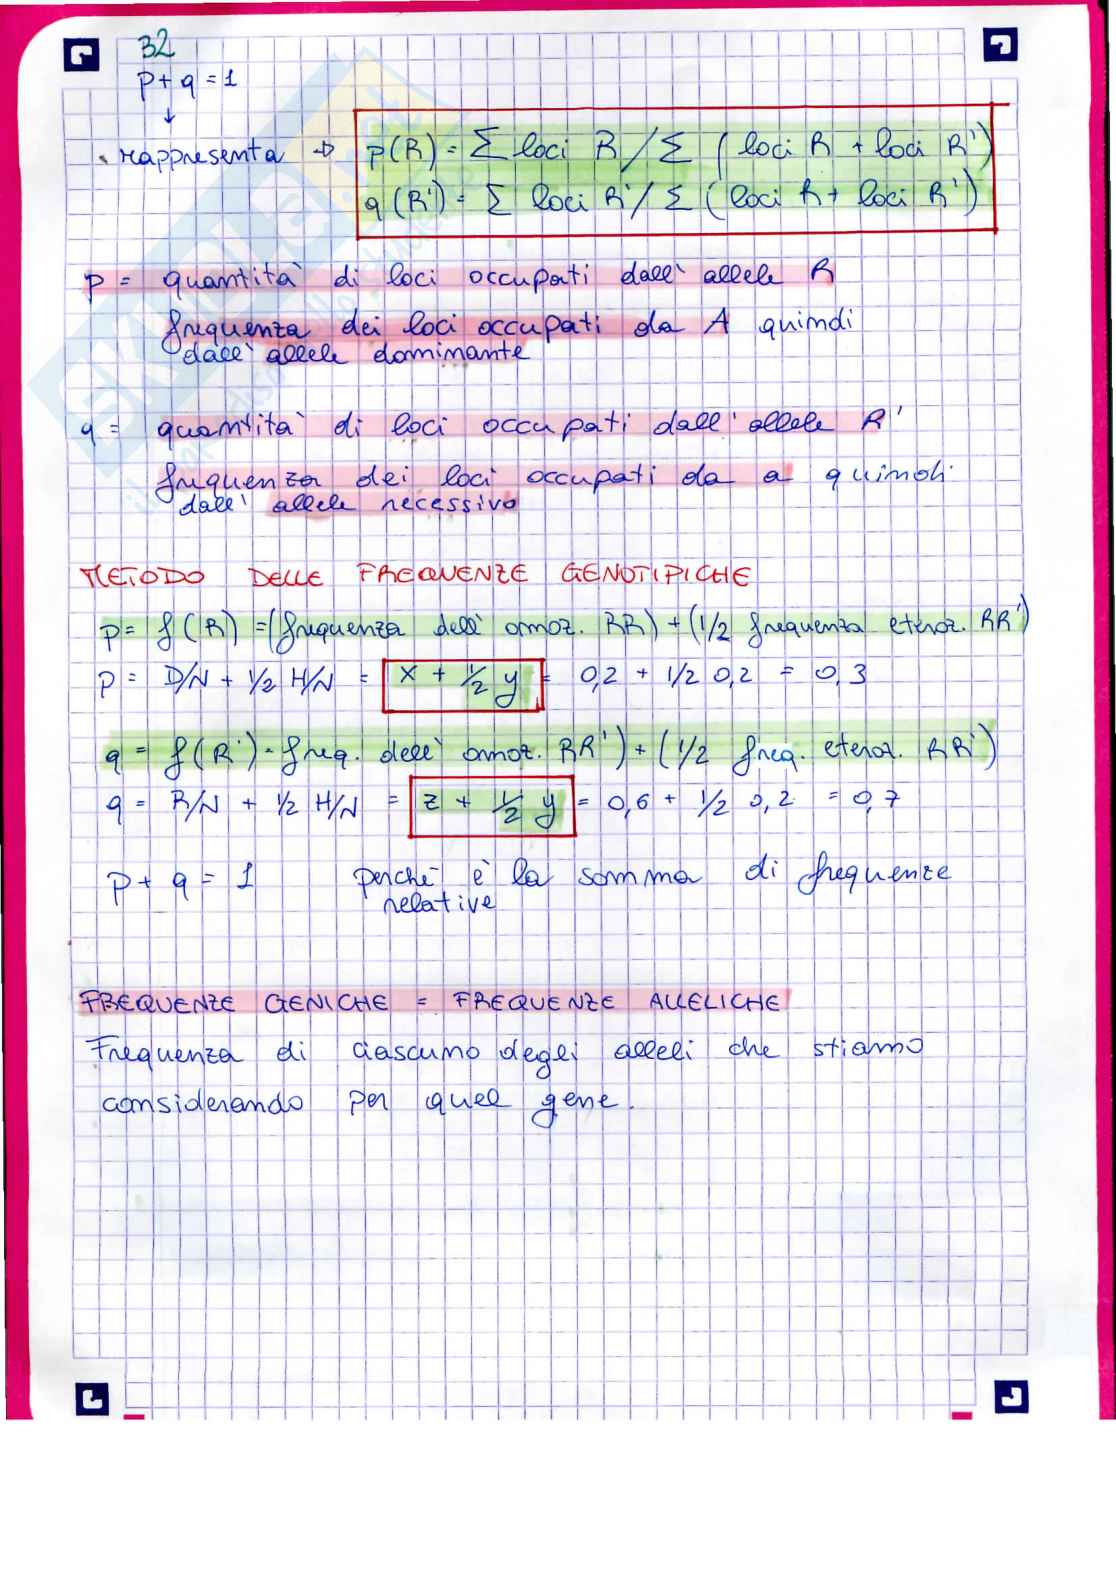 32
p + q = 1
↓
• rappresenta → p(R) = Σ loci R / Σ (loci R + loci R')
q(R') = Σ loci R' / Σ (loci R + loci R')
p = quantità di loci occupati dall' allele R
frequenza dei loci occupati da A quindi
dall' allele dominante
q = quantità di loci occupati dall' allele R'
frequenza dei loci occupati da a quindi
dall' allele recessivo
METODO DELLE FREQUENZE GENOTIPICHE
p = f(R) = (frequenza dell' omoz. RR) + (1/2 frequenza eteroz. RR')
p = D/N + 1/2 H/N = x + 1/2 y = 0,2 + 1/2 0,2 = 0,3
q = f(R') = freq. dell' omoz. RR') + (1/2 freq. eteroz. RR')
q = R/N + 1/2 H/N = z + 1/2 y = 0,6 + 1/2 0,2 = 0,7
p + q = 1 perchè è la somma di frequenze
relative
FREQUENZE GENICHE = FREQUENZE ALLELICHE
Frequenza di ciascuno degli alleli che stiamo
considerando per quel gene.